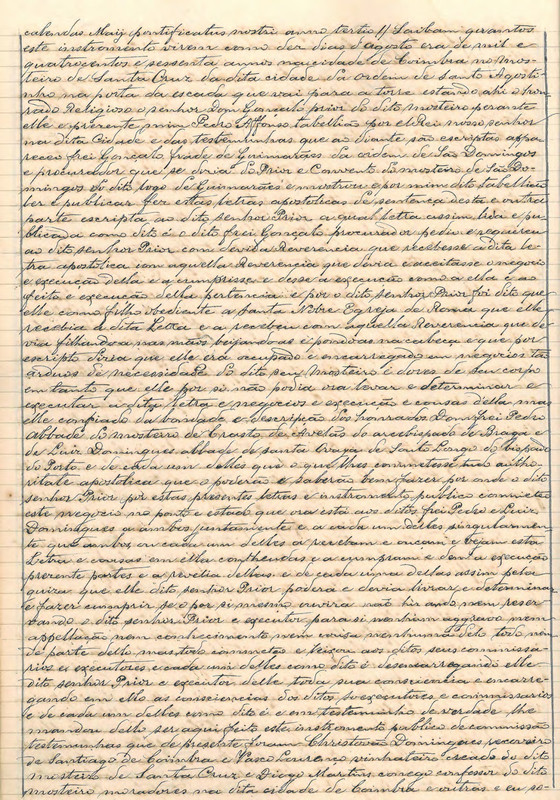 calendas Maij pontificatus nostri anno tertio // Saibam quantos
este instromento virem como dez dias d'agosto era de mil e
quatrocentos e sessenta annos na cidade de Coimbra no mos-
teiro de Santa Cruz da dita cidade da ordem de Santo Agosti-
nho na porta da escada que vai para a torre estando ahi o hon-
rado Religioso e senhor Dom Gonçalo prior do dito mosteiro perante
elle e presente mim Pedro Affonso tabellião por elRei nosso senhor
na dita Cidade e das testemunhas que ao diante são escriptas appa-
receu frei Gonçalo frade de Guimarães da ordem de São Domingos
e procurador que se dizia do Prior e Convento do mosteiro de São Do-
mingos do dito logo de Guimarães e mostrou e por mim dito tabellião
ler e publicar fez estas letras apostolicas de sentença desta e outra
parte escripta ao dito senhor Prior a qual letra assim lida e pu-
blicada como dito é o dito frei Gonçalo procurador pediu e requereu
ao dito senhor Prior com devida Reverencia que recebesse a dita le-
tra apostolica com aquella Reverencia que devia e aceitasse o negocio
e execução della e a cumprisse e desse a execução como a ella e ao
feito e execução della pertencia e por o dito senhor Prior foi dito que
elle como filho obediente a Santa Madre Egreja de Roma que elle
recebia a dita Letra e a recebeu com aquella Reverencia que de-
via filhando-a nas mãos beijando-as e pondo-as na cabeça e que por
escripto dizia que elle era occupado e encarregado em negocios tão
arduos de necessidade do dito seu Mosteiro e dores de seu corpo
em tanto que elle por si não podia ora levar e determinar e
executar a dita letra e negocios e execução e cousa della mas
elle confiado da bondade e descripção dos honrados Dom frei Pedro
Abbade do mosteiro de Crasto de Avelãs do arcebispado de Braga e
de Luiz Domingues abbade de santa Cruz de Santo Longo do bispado
do Porto e de cada um delles que o que lhes commettesse sua autho-
ridade apostolica que o poderão e saberão bem fazer por onde o dito
senhor Prior por estas presentes letras e instromento publico commetteu
este negocio no ponto e estado que ora está aos ditos frei Pedro e Luiz
Domingues a ambos juntamente e a cada um delles singularmen-
te que ambos ou cada um delles a recebam e oucam e vejam esta
Letra e cousas em ella contheudas e a cumpram e dem a execução
presente partes e a revelia dellas e de cada uma dellas assim pela
guiza que elle dito senhor Prior podera e devia livrar e determinar
e fazer cumprir se o por si mesmo ouvira não tirando nem reser-
vando o dito senhor Prior e executor para si nenhum aggravo nem
appellação nem conhecimento nem coisa nenhuma de todo nem
de parte dello mas todo commetteu e leixou aos ditos seus commissa-
rios e executores e cada um delles como dito é desencarregando elle
dito senhor Prior e executor delle toda sua consciencia e encarre-
gando em elle as consciencias dos ditos sobexecutores e commissarios
e de cada um delles como dito é e em testemunho de verdade lhe
mandou dello ser aqui feito este instromento publico de commissão
testemunhas que de presente foram Christovão Domingues raçoeiro
de Santiago de Coimbra e Vasco Lourenço vinhateiro creado do dito
mosteiro de Santa Cruz e Diogo Martins conego confessor do dito
mosteiro moradores na dita cidade de Coimbra e outros e eu so-